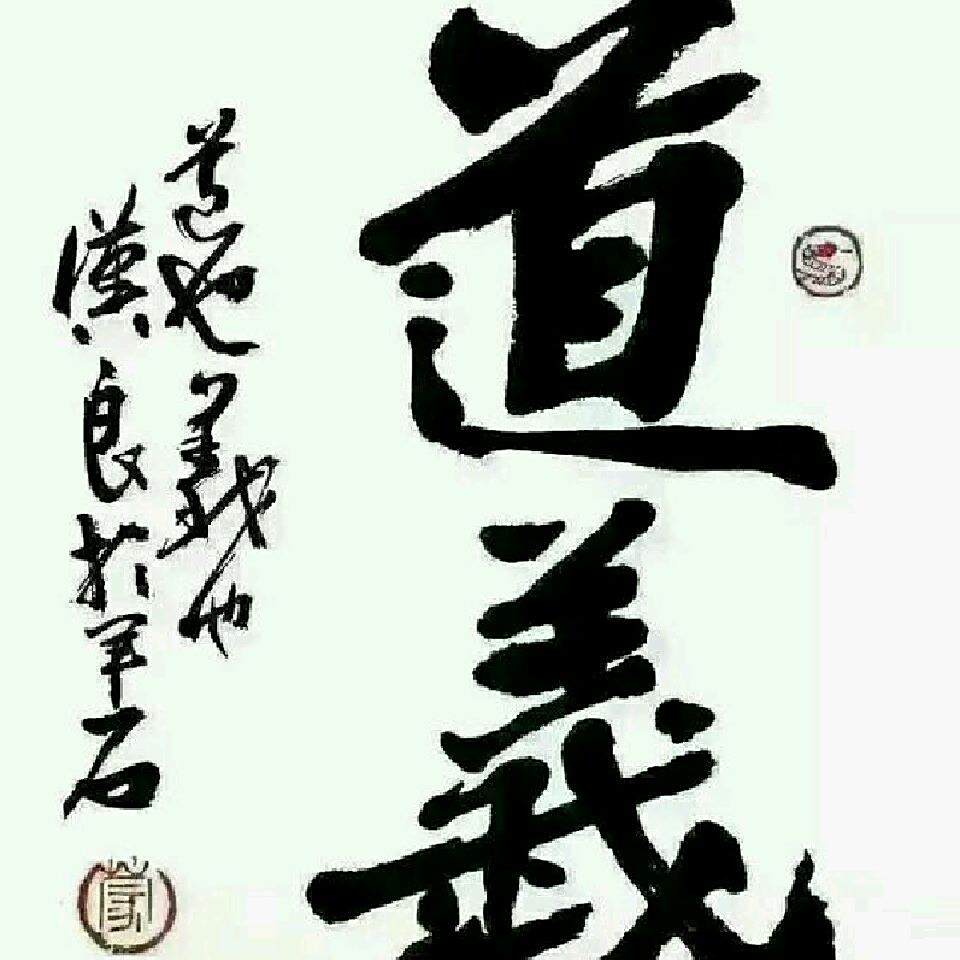 道義
道也義也
漢良於羊石